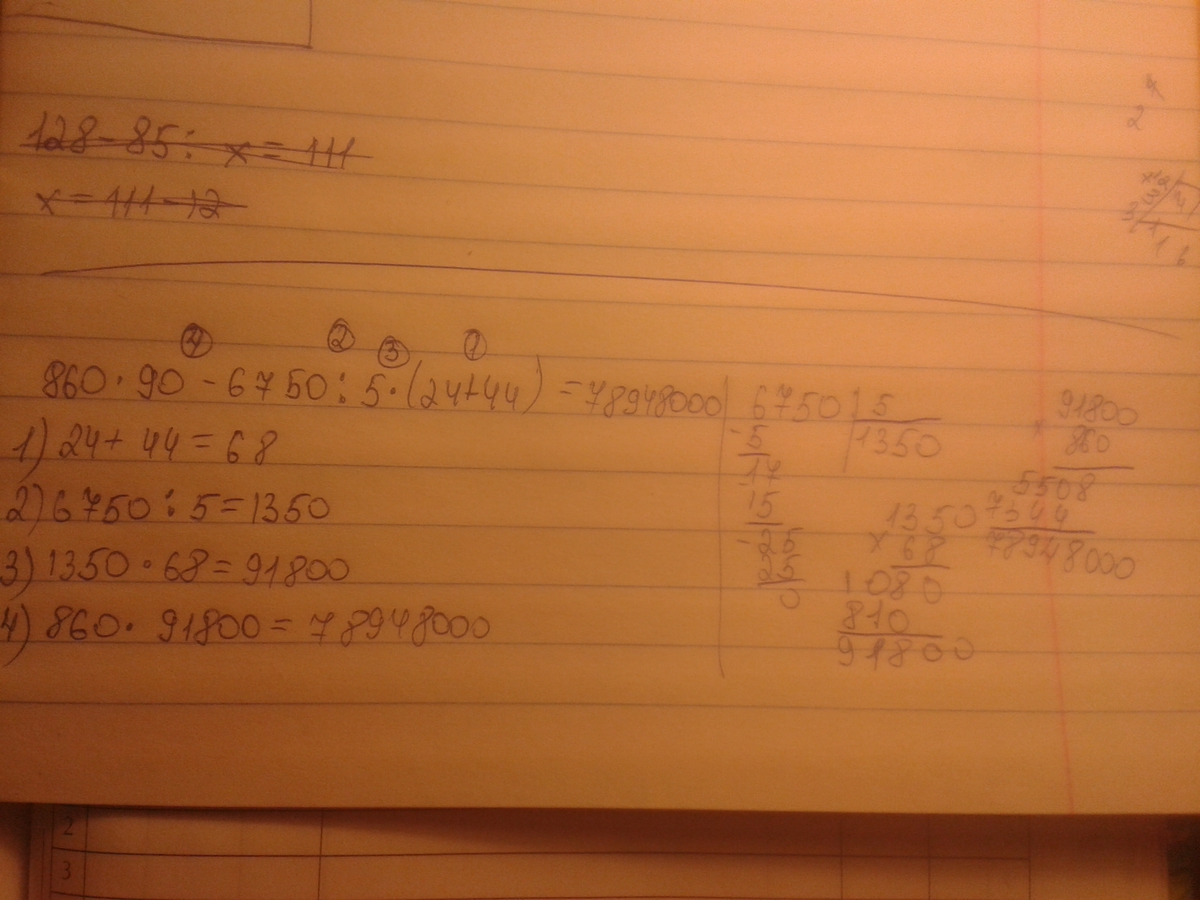 128 - 85 : x = 111
x = 111 - 12
4 2 3 1
860 · 90 - 6750 : 5 · (24+44) = 78948000
1) 24 + 44 = 68
2) 6750 : 5 = 1350
3) 1350 · 68 = 91800
4) 860 · 91800 = 78948000
6750 5
-5 1350
-17
15
-25
25
0
1350
× 68
1080
810
91800
91800
× 860
5508
7344
78948000
2
3